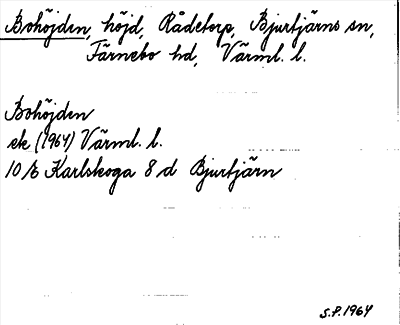 Bohöjden, höjd, Rådetorp, Bjurtjärns sn,
Färnebo hd, Värml. l.
Bohöjden
ek (1964) Värml. l.
10 E Karlskoga 8 d Bjurtjärn
S.P. 1964